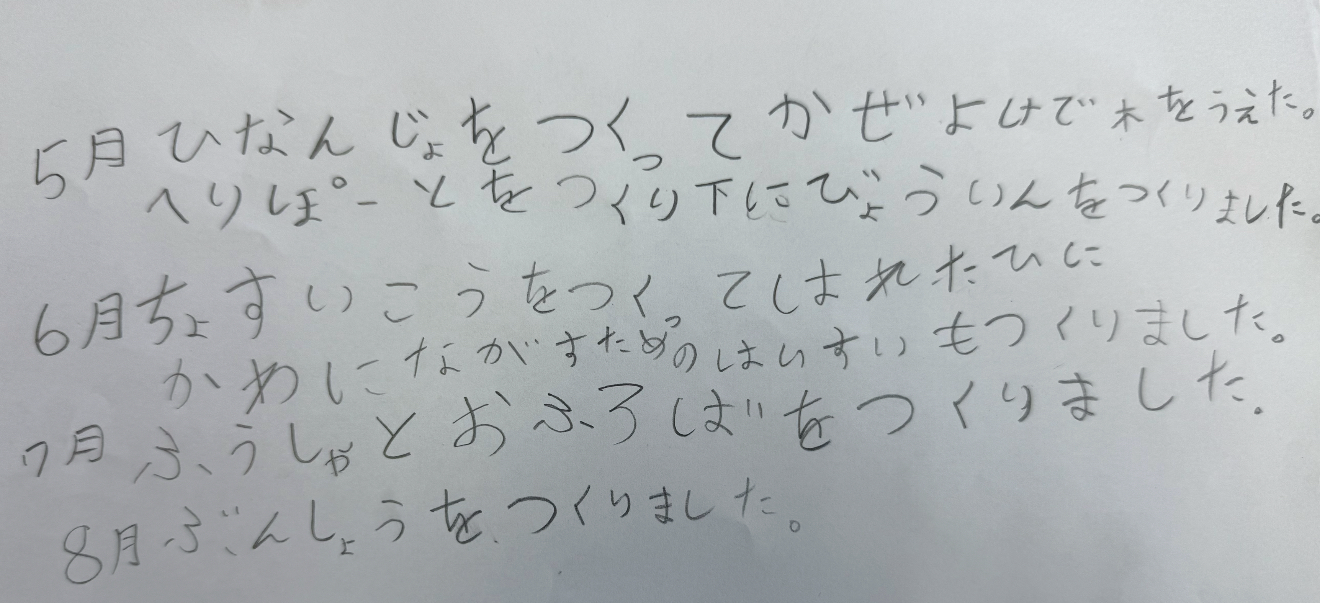 5月ひなんじょをつくってかぜよけで木をうえた。
へりぽーとをつくり下にびょういんをつくりました。
6月ちょすいこうをつくってはれたひに
かわにながすためのはいすいもつくりました。
7月ふうしゃとおふろばをつくりました。
8月ぶんしょうをつくりました。